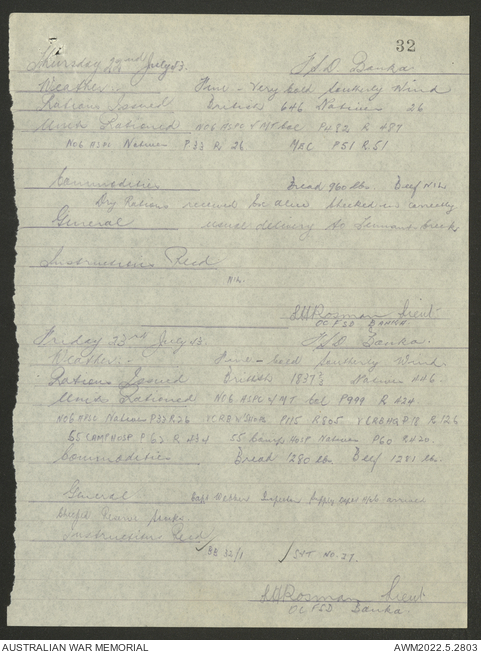 32
Thursday 22nd July 43. FSD Banka.
Weather:- Fine - Very cold Southerly Wind
Rations Issued British 646 Natives 26
Units Rationed NO6 ASPC & MT Col P482 R 487
NO6 ASPC Natives P33 R 26 MAC P51 R51
Commodities Bread 960 lbs Beef NIL
Dry Rations received for above checked in correctly
General usual delivery to Tennant Creek
Instructions Recd
NIL.
Rosman Lieut
OC FSD BANKA
Friday 23rd July 43. FSD Banka.
Weather:- Fine - cold Southerly Wind
Rations Issued British 1837½ Natives 446.
Units Rationed NO6 ASPC & MT Col P999 R 424.
NO6 ASPC Natives P33 R26 P115 R805 R 126
55 CAMP HOSP P62 R 434 55 Camp Hosp Natives P60 R420.
Commodities Bread 1280 lbs Beef 1281 lbs.
General Capt Webber Supply arrived
Instruction Recd
32/1 / NO. 27.
Rosman Lieut
OC FSD Banka.
AUSTRALIAN WAR MEMORIAL
AWM2022.5.2803